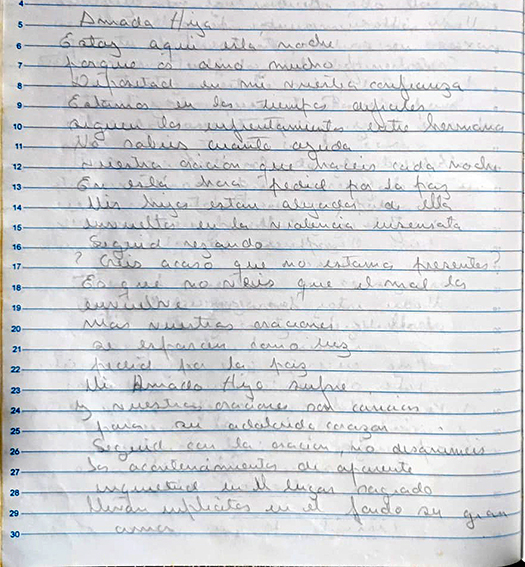 4
5 Amada Hija
6 Estoy aquí esta noche
7 porque os amo mucho
8 Depositad en mi vuestra confianza
9 Estamos en los tiempos dificiles
10 siguen los enfrentamientos entre hermanos
11 No sabeis cuanta ayuda
12 vuestra oración que haceis cada noche
13 En esta hora pedid por la paz
14 Mis hijos estan alejados de ella
15 envueltos en la violencia insensata
16 Seguid rezando
17 ? Creis acaso que no estamos presentes?
18 Es que no veis que el mal los
19 envuelve
20 mas vuestras oraciones
21 se esparcen como luz
22 pedid por la paz
23 Mi Amado Hijo sufre
24 y vuestras oraciones son caricias
25 para su adolorido corazón
26 Seguid con la oración, no desanimeis
27 los acontecimientos de aparente
28 inquietud en el lugar sagrado
29 llevan implicitos en el fondo su gran
30 amor